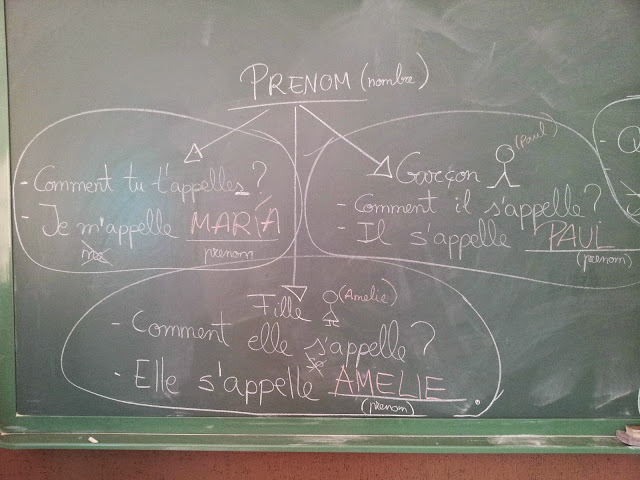 PRENOM (nombre)
- Comment tu t'appelles ?
- Je m'appelle MARÍA
me
prenom
Garçon (Paul)
- Comment il s'appelle ?
- Il s'appelle PAUL
(prenom)
Fille (Amelie)
- Comment elle s'appelle ?
- Elle s'appelle AMELIE.
(prenom)